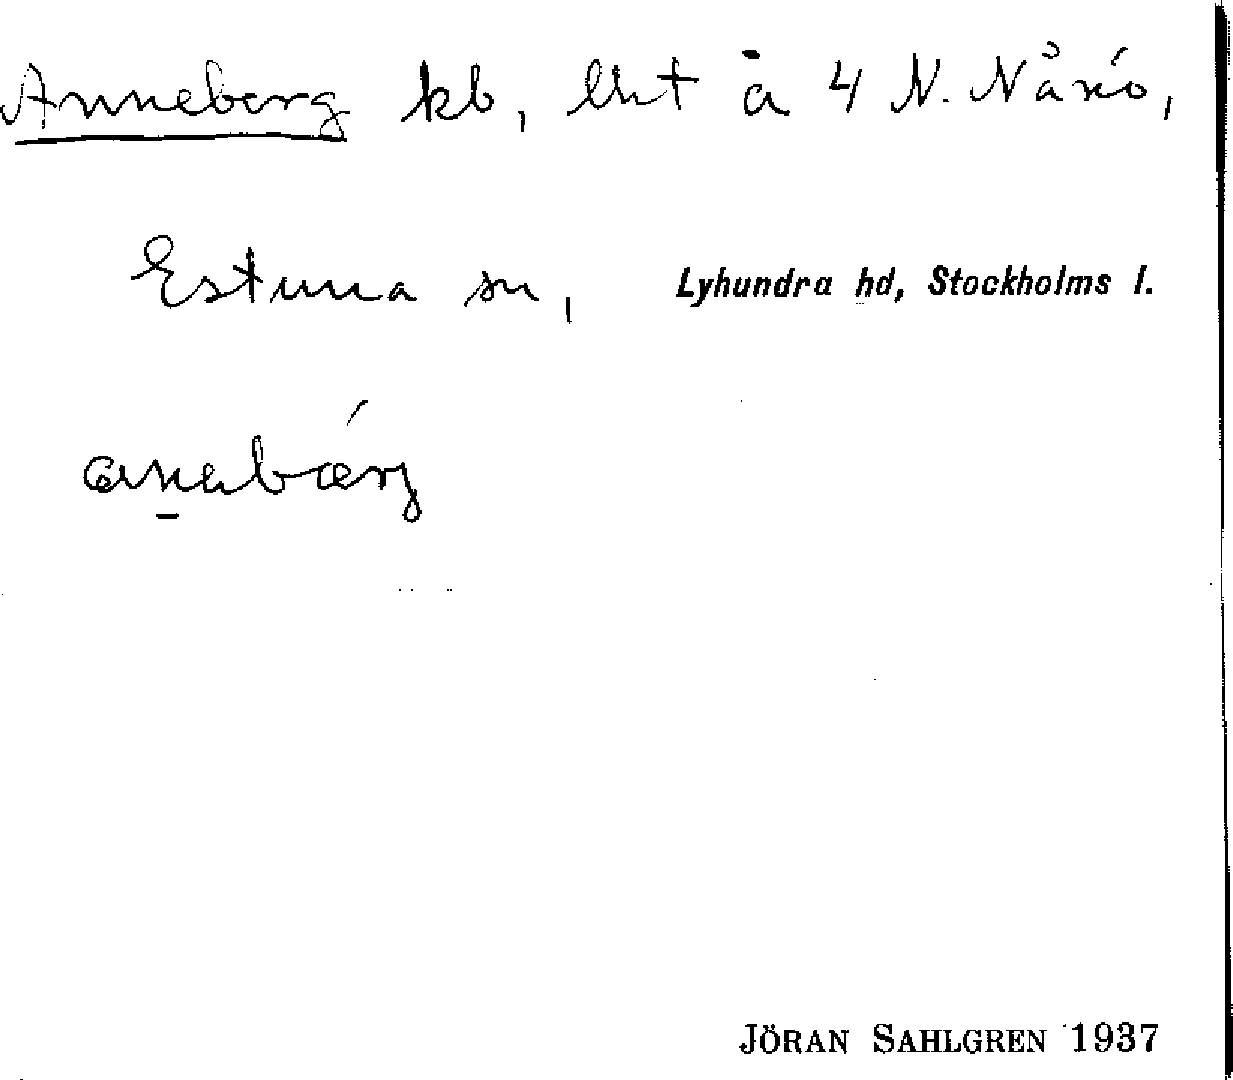 Anneberg kb, lht å 4 N. Nånö,
Estuna sn, Lyhundra hd, Stockholms l.
JÖRAN SAHLGREN 1937